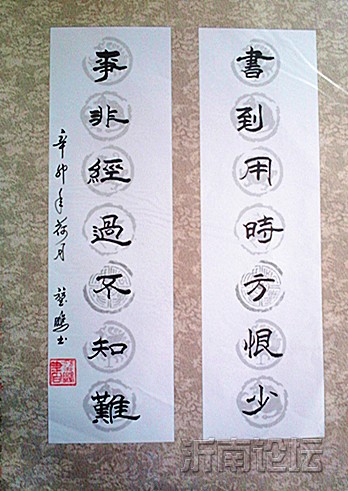 書到用時方恨少
事非經過不知難
辛卯年荷月
沂南论坛